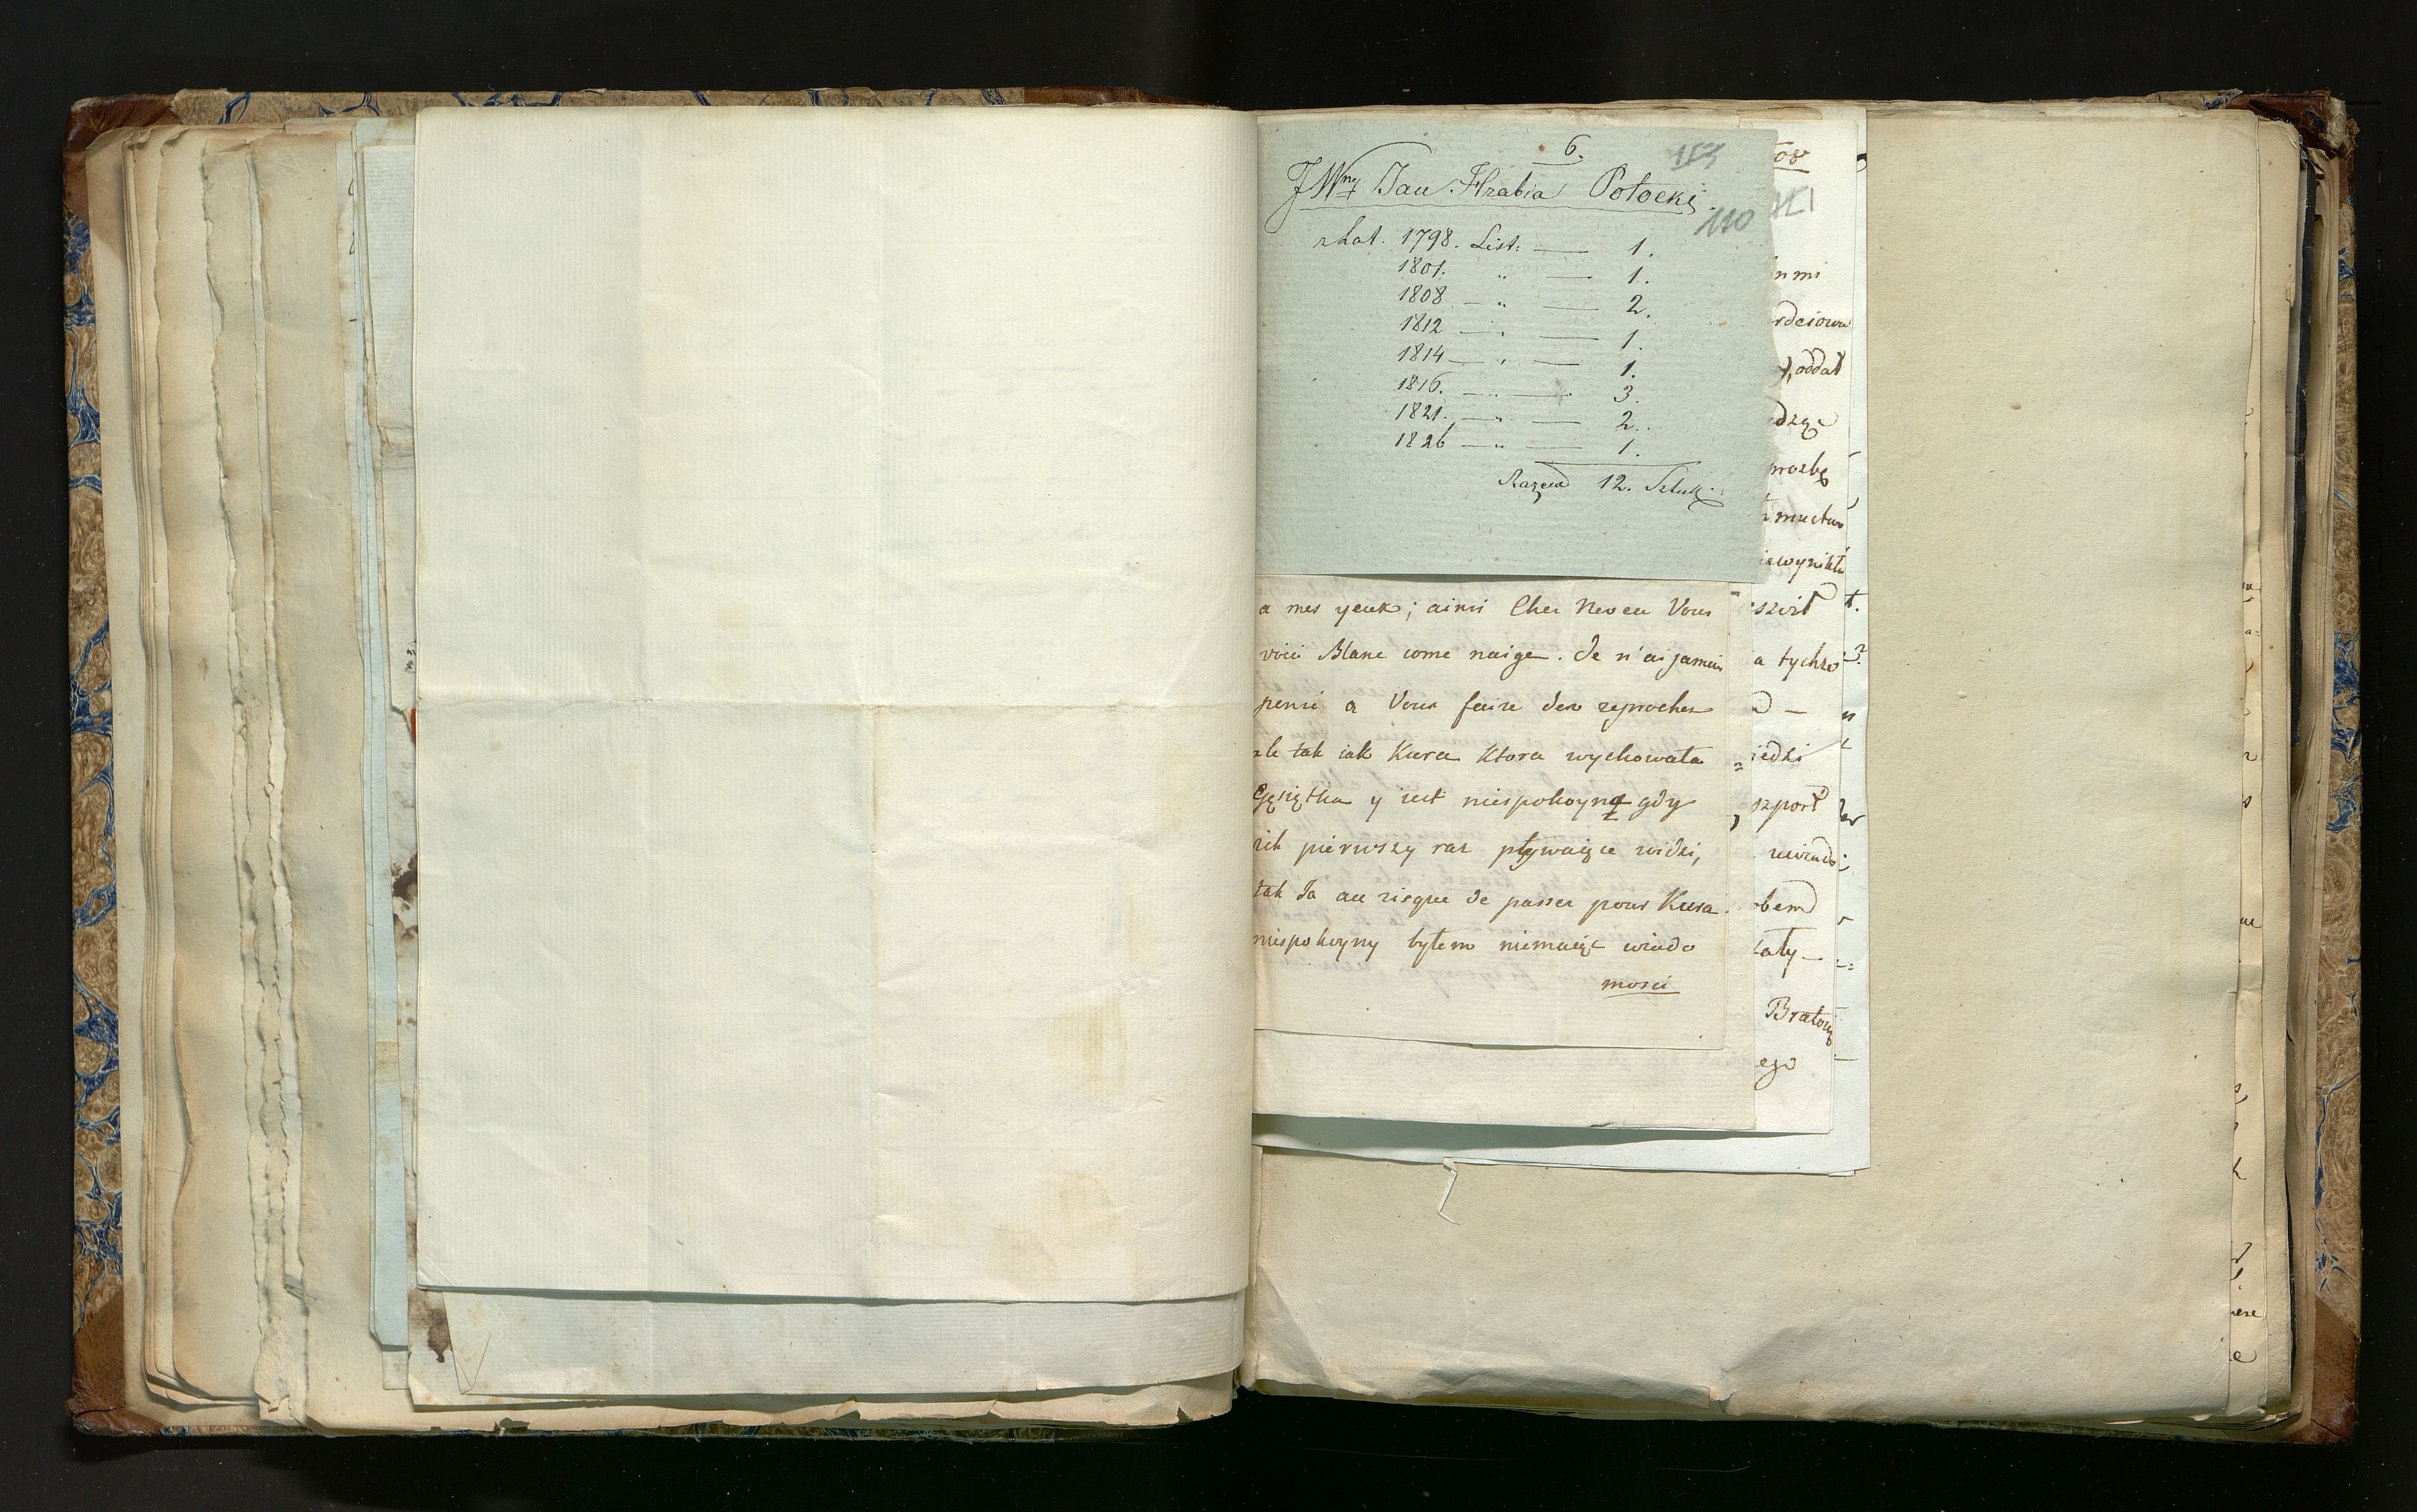 6.
153
JWny Jan Hrabia Potocki.
110
z lat. 1798. List: — 1.
1801. " — 1.
1808 — " — 2.
1812 — " — 1.
1814 — " — 1.
1816. — " — 3.
1821. — " — 2.
1826 — " — 1.
Razem 12. Sztuk:
a mes yeux; ainsi Cher Neveu Vous
voici Blanc come naige. Je n'ai jamais
pensé a Vous faire des reproches
ale tak iak Kura Ktora wychowała
Gęsiątka y iest niespokoyną gdy
ich pierwszy raz pływaiące widzi,
tak Ja au risque de passer pour Kura
niespokoyny byłem niemaiąc wiado
mosci
n mi
rdciowa
, oddał
dzęć
prozbę
szport
obem
Bratow
ego